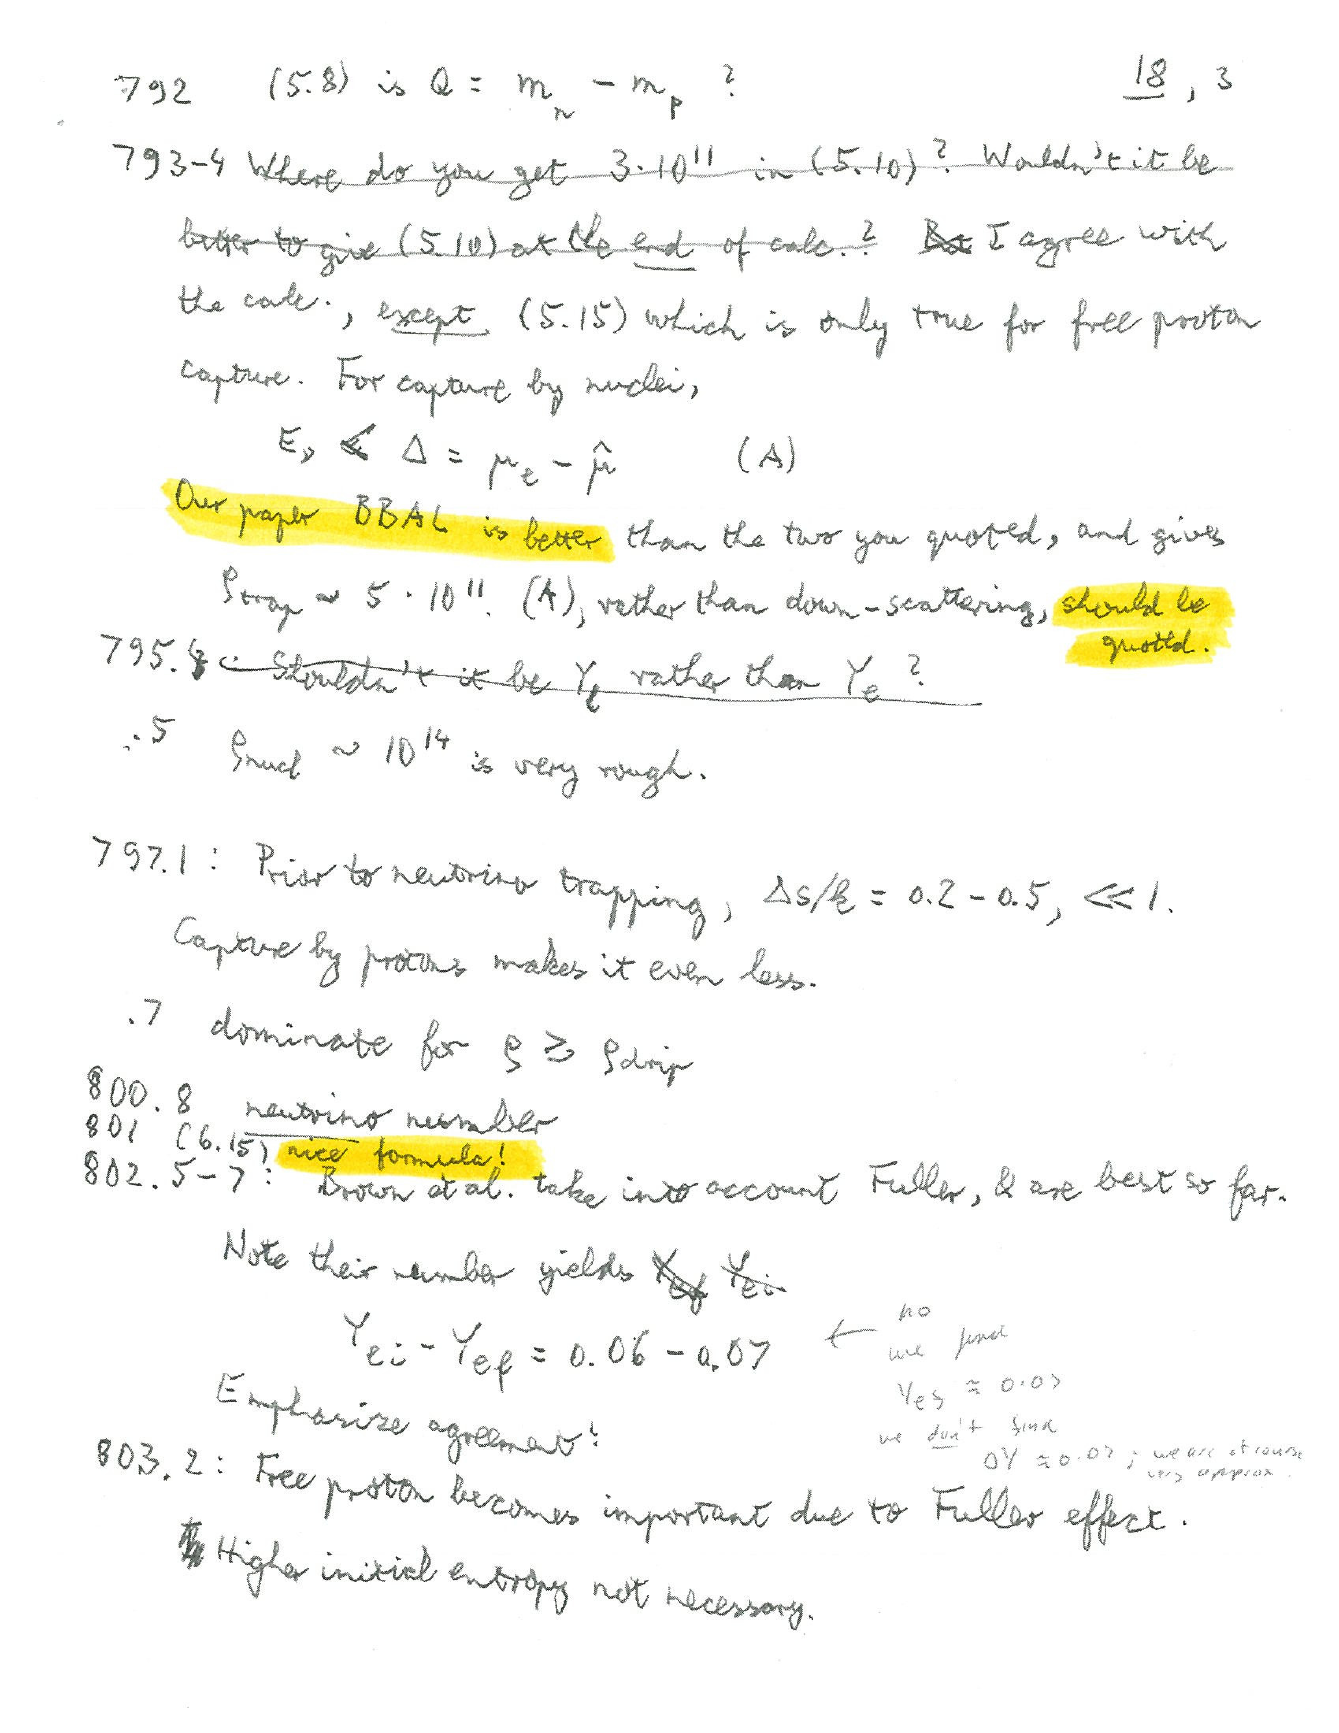 792 (5.8) is Q = m_n - m_p ? 18, 3
793-4 Where do you get 3·10¹¹ in (5.10)? Wouldn't it be
better to give (5.10) at the end of calc.? But I agree with
the calc., except (5.15) which is only true for free proton
capture. For capture by nuclei,
E_ν ≤ Δ = μ_e - μ̂ (A)
Our paper BBAL is better than the two you quoted, and gives
ρ_trap ~ 5·10¹¹. (A), rather than down-scattering, should be
quoted.
795. : Shouldn't it be Y_ℓ rather than Y_e ?
.5 ρ_nucl ~ 10¹⁴ is very rough.
797.1: Prior to neutrino trapping, Δs/k = 0.2 - 0.5, << 1.
Capture by protons makes it even less.
.7 dominate for ρ ≥ ρ_drip
800.8 neutrino number
801 (6.15) nice formula!
802.5-7: Brown et al. take into account Fuller, & are best so far.
Note their number yields Y_ef Y_ei
Y_ei - Y_ef = 0.06 - 0.07 ← no
we find
we don't find
we are of course
very approx.
Emphasize agreement!
803.2: Free proton becomes important due to Fuller effect.
Higher initial entropy not necessary.